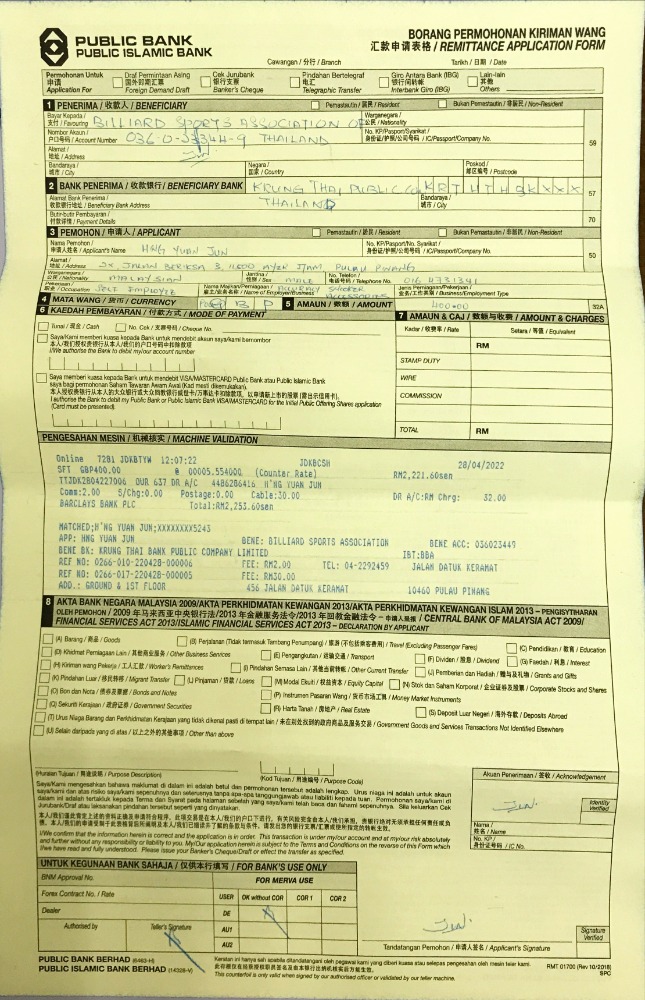 PUBLIC BANK
PUBLIC ISLAMIC BANK
BORANG PERMOHONAN KIRIMAN WANG
汇款申请表格 / REMITTANCE APPLICATION FORM
Cawangan / 分行 / Branch
Tarikh / 日期 / Date
Permohonan Untuk
申请
Application For
Draf Permintaan Asing
国外即期汇票
Foreign Demand Draft
Cek Jurubank
银行支票
Banker's Cheque
Pindahan Bertelegraf
电汇
Telegraphic Transfer
Giro Antara Bank (IBG)
银行间转帐
Interbank Giro (IBG)
Lain-lain
其他
Others
1 PENERIMA / 收款人 / BENEFICIARY
Pemastautin / 居民 / Resident
Bukan Pemastautin / 非居民 / Non-Resident
Bayar Kepada /
支付 / Favouring
BILLIARD SPORTS ASSOCIATION OF
Warganegara /
公民 / Nationality
Nombor Akaun /
户口号码 / Account Number
THAILAND
No. KP/Pasport/Syarikat /
身份证/护照/公司号码 / IC/Passport/Company No.
59
Alamat /
地址 / Address
Bandaraya /
城市 / City
Negara /
国家 / Country
Poskod /
邮区编号 / Postcode
2 BANK PENERIMA / 收款银行 / BENEFICIARY BANK
KRUNG THAI PUBLIC
KRTHTHBKXXX
57
Alamat Bank Penerima /
收款银行地址 / Beneficiary Bank Address
THAILAND
Bandaraya /
城市 / City
Butir-butir Pembayaran /
付款详情 / Payment Details
70
3 PEMOHON / 申请人 / APPLICANT
Pemastautin / 居民 / Resident
Bukan Pemastautin / 非居民 / Non-Resident
Nama Pemohon /
申请人姓名 / Applicant's Name
HNG YUAN JUN
No. KP/Pasport/No. Syarikat /
身份证/护照/公司号码 / IC/Passport/Company No.
50
Alamat /
地址 / Address
JALAN BERIKSA 3, 11500 AYER ITAM PULAU PINANG
Warganegara /
公民 / Nationality
MALAYSIAN
Jantina /
MALE
No. Telefon /
电话号码 / Telephone No.
Pekerjaan /
职业 / Occupation
SELF EMPLOYED
Nama Majikan/Perniagaan /
雇主/业务名称 / Name of Employer/Business
SNOOKER
ACCESSORIES
Jenis Perniagaan/Pekerjaan /
业务/工作类别 / Business/Employment Type
4 MATA WANG / 货币 / CURRENCY
G B P
5 AMAUN / 数额 / AMOUNT
400.00
32A
6 KAEDAH PEMBAYARAN / 付款方式 / MODE OF PAYMENT
7 AMAUN & CAJ / 数额与收费 / AMOUNT & CHARGES
Tunai / 现金 / Cash
No. Cek / 支票号码 / Cheque No.
Kadar / 收费率 / Rate
Setara / 等值 / Equivalent
Saya/Kami memberi kuasa kepada Bank untuk mendebit akaun saya/kami bernombor
本人/我们授权贵银行从本人/我们的户口号码中扣除款项
I/We authorise the Bank to debit my/our account number
RM
STAMP DUTY
Saya memberi kuasa kepada Bank untuk mendebit VISA/MASTERCARD Public Bank atau Public Islamic Bank
saya bagi permohonan Saham Tawaran Awam Awal (Kad mesti dikemukakan).
I authorise the Bank to debit my Public Bank or Public Islamic Bank VISA/MASTERCARD for the Initial Public Offering Shares application
(Card must be presented).
WIRE
COMMISSION
TOTAL
RM
PENGESAHAN MESIN / 机械核实 / MACHINE VALIDATION
Online 7281 JDKBTYW 12:07:22 JDKBCSH 28/04/2022
SFT GBP400.00 @ 00005.554000 (Counter Rate) RM2,221.60sen
TTJDK2804227006 OUR 637 DR A/C 4486286416 H'NG YUAN JUN
Comms:2.00 S/Chg:0.00 Postage:0.00 Cable:30.00 DR A/C:RM Chrg: 32.00
BARCLAYS BANK PLC Total:RM2,253.60sen
MATCHED;H'NG YUAN JUN;XXXXXXX5243
APP: HNG YUAN JUN BENE: BILLIARD SPORTS ASSOCIATION BENE ACC: 036023449
BENE BK: KRUNG THAI BANK PUBLIC COMPANY LIMITED IBT:BBA
REF NO: 0266-010-220428-000006 FEE: RM2.00 TEL: 04-2292459 JALAN DATUK KERAMAT
REF NO: 0266-017-220428-000005 FEE: RM30.00
ADD.: GROUND & 1ST FLOOR 456 JALAN DATUK KERAMAT 10460 PULAU PINANG
8 AKTA BANK NEGARA MALAYSIA 2009/AKTA PERKHIDMATAN KEWANGAN 2013/AKTA PERKHIDMATAN KEWANGAN ISLAM 2013 – PENGISYTIHARAN
OLEH PEMOHON / 2009 年马来西亚中央银行法/2013 年金融服务法令/2013 年回教金融法令 – 申请人陈报 / CENTRAL BANK OF MALAYSIA ACT 2009/
FINANCIAL SERVICES ACT 2013/ISLAMIC FINANCIAL SERVICES ACT 2013 – DECLARATION BY APPLICANT
(A) Barang / 商品 / Goods
(B) Perjalanan (Tidak termasuk Tambang Penumpang) / 旅游 (不包括乘客费用) / Travel (Excluding Passenger Fares)
(C) Pendidikan / 教育 / Education
(D) Khidmat Perniagaan Lain / 其他商业服务 / Other Business Services
(E) Pengangkutan / 运输交通 / Transport
(F) Dividen / 股息 / Dividend
(G) Faedah / 利息 / Interest
(H) Kiriman wang Pekerja / 工人汇款 / Worker's Remittances
(I) Pindahan Semasa Lain / 其他当前转帐 / Other Current Transfer
(J) Pemberian dan Hadiah / 赠与及礼物 / Grants and Gifts
(K) Pindahan Luar / 移民转移 / Migrant Transfer
(L) Pinjaman / 贷款 / Loans
(M) Modal Ekuiti / 权益资本 / Equity Capital
(N) Stok dan Saham Korporat / 企业证券及股票 / Corporate Stocks and Shares
(O) Bon dan Nota / 债券及票据 / Bonds and Notes
(P) Instrumen Pasaran Wang / 货币市场工具 / Money Market Instruments
(Q) Sekuriti Kerajaan / 政府证券 / Government Securities
(R) Harta Tanah / 房地产 / Real Estate
(S) Deposit Luar Negeri / 海外存款 / Deposits Abroad
(T) Urus Niaga Barang dan Perkhidmatan Kerajaan yang tidak dikenal pasti di tempat lain / 未在别处找到的政府商品及服务交易 / Government Goods and Services Transactions Not Identified Elsewhere
(U) Selain daripada yang di atas / 以上之外的其他事项 / Other than above
(Huraian Tujuan / 用途说明 / Purpose Description)
(Kod Tujuan / 用途编号 / Purpose Code)
Akuan Penerimaan / 签收 / Acknowledgement
Identity
verified
Name /
姓名 / Name
No. KP /
身份证号码 / IC No.
I/We confirm that the information herein is correct and the application is in order. This transaction is under my/our account and at my/our risk absolutely
and without any responsibility or liability to you. My/Our application herein is subject to the Terms and Conditions on the reverse of this Form which
I/we have read and fully understood. Please issue your Banker's Cheque/Draft or effect the transfer as specified.
UNTUK KEGUNAAN BANK SAHAJA / 仅供本行填写 / FOR BANK'S USE ONLY
BNM Approval No.
FOR MERVA USE
Forex Contract No. / Rate
USER
OK without COR
COR 1
COR 2
Dealer
DE
Authorised by
Teller's Signature
AU1
AU2
Tandatangan Pemohon / 申请人签名 / Applicant's Signature
Signature
Verified
PUBLIC BANK BERHAD (6463-H)
PUBLIC ISLAMIC BANK BERHAD (14328-V)
Keratan ini hanya sah apabila ditandatangani oleh pegawai kami yang diberi kuasa atau selepas pengesahan oleh mesin teler kami.
This counterfoil is only valid when signed by our authorised officer or validated by our teller machine.
RMT 01700 (Rev 10/2018)
SPC